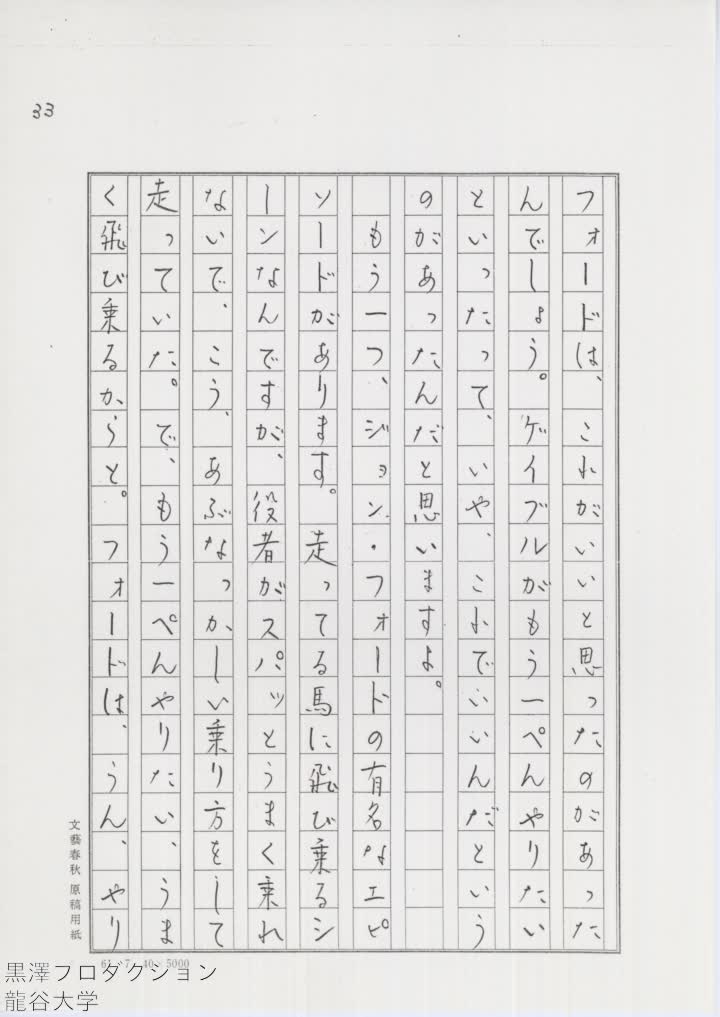 33
フォードは、これがいいと思ったのがあった
んでしょう。ゲイブルがもう一ぺんやりたい
といったって、いや、これでいいんだという
のがあったんだと思いますよ。
もう一つ、ジョン・フォードの有名なエピ
ソードがあります。走ってる馬に飛び乗るシ
ーンなんですが、役者がスパッとうまく乗れ
ないで、こう、あぶなっかしい乗り方をして
走っていた。で、もう一ぺんやりたい、うま
く飛び乗るからと。フォードは、うん、やり
文藝春秋 原稿用紙
61・7・40×5000
黒澤プロダクション
龍谷大学